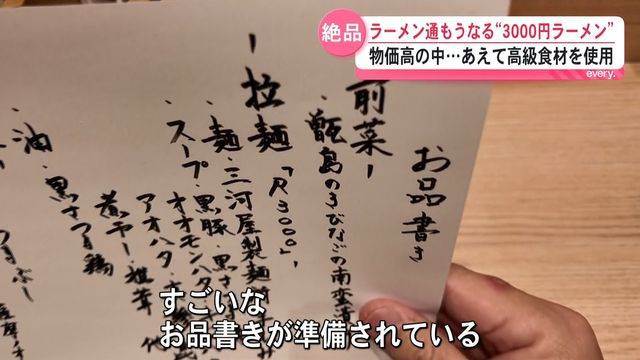 絶品
ラーメン通もうなる“3000円ラーメン”
物価高の中…あえて高級食材を使用
every.
お品書き
前菜ー
・甑島のきびなごの南蛮漬
ー拉麺「R3000」,
・麺・三河屋製麺
・スープ・黒豚・黒さつま
オオモンハタ
アオハタ
煮干ー・椎茸
・油・黒さつま鶏
すごいな
お品書きが準備されている